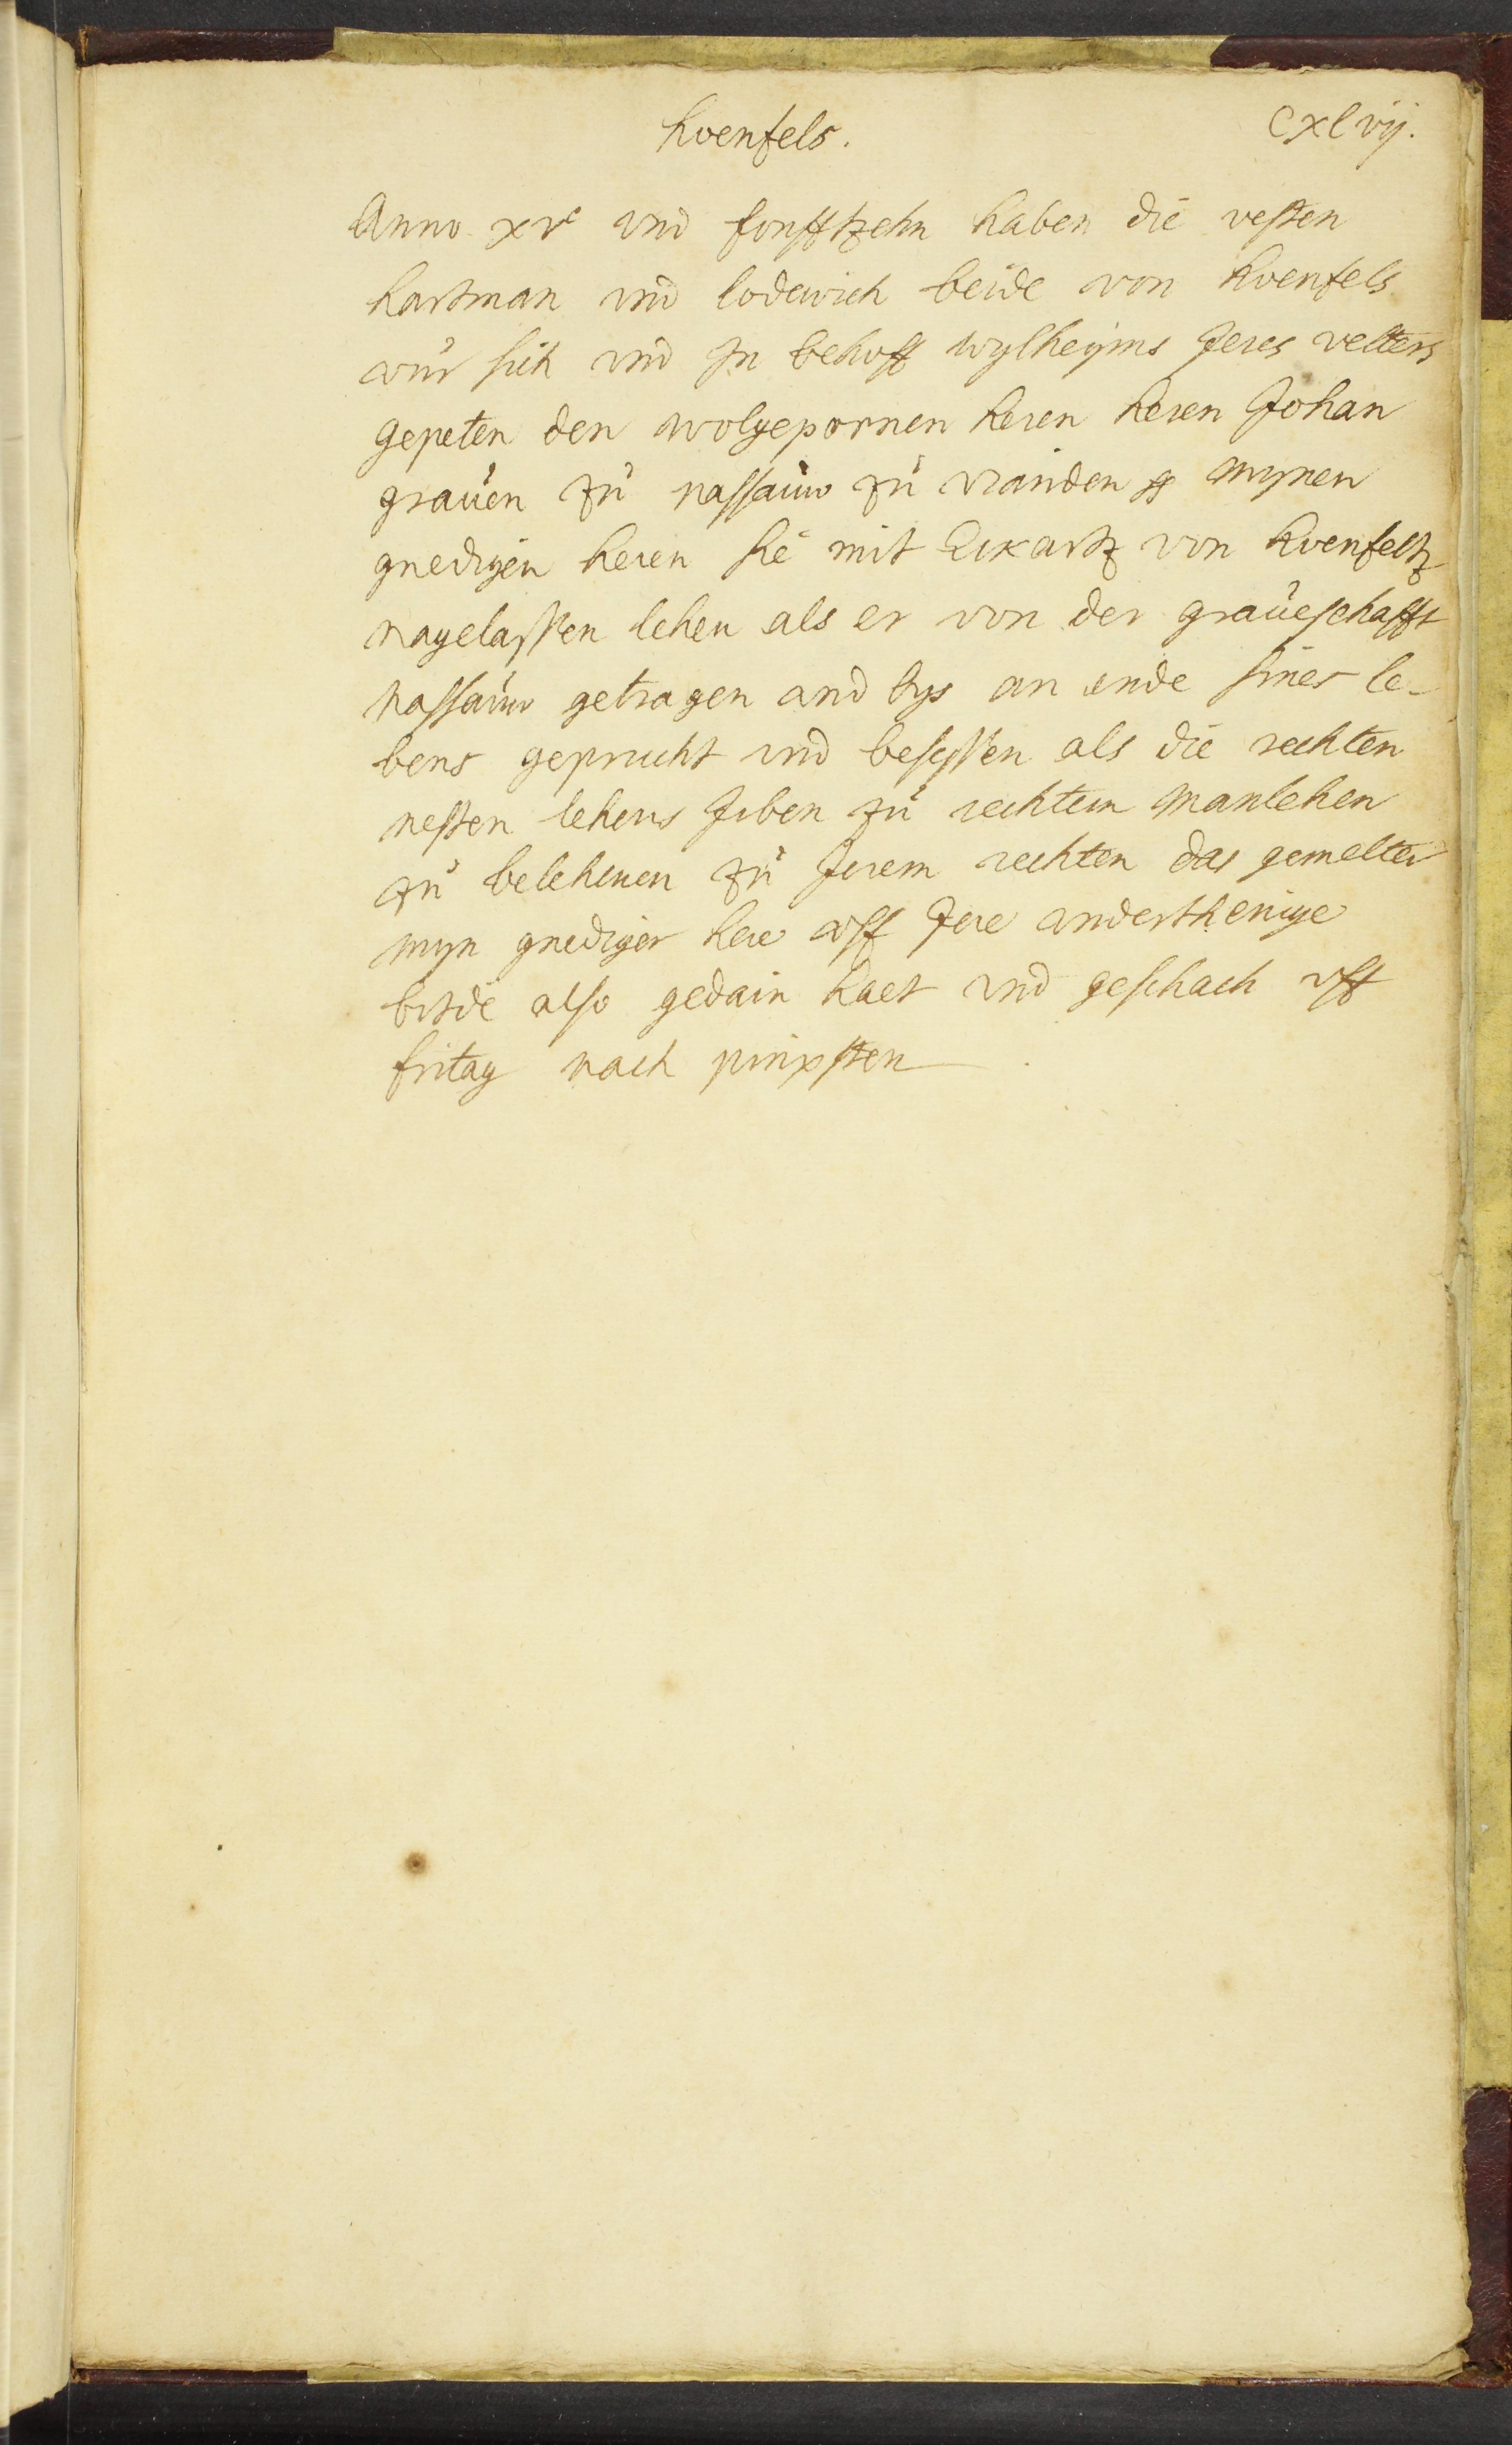 Hoenfels.
Cxlvij.
Anno xvᶜ vnd fonfftzehn haben die vesten
hartman vnd lodewich beide von Hoenfels
vur sich vnd Jn behoff wylheyms Jeres vetters
gepeten den wolgepornen heren heren Johan
graůen zů nassauw zů vianden mynen
gnedigen heren sie mit Eckartz von Hoenfeltz
nagelassen lehen als er von der graůeschafft
nassauw getragen vnd bys an ende sines le-
bens geprucht vnd besessen als die rechten
nesten lehens Erben zů rechtem manlehen
zů belehenen zů Jerem rechten das gemelter
myn gnediger here vff Jere vnderthenige
bitde also gedain haet vnd geschach vff
fritag nach pinxsten